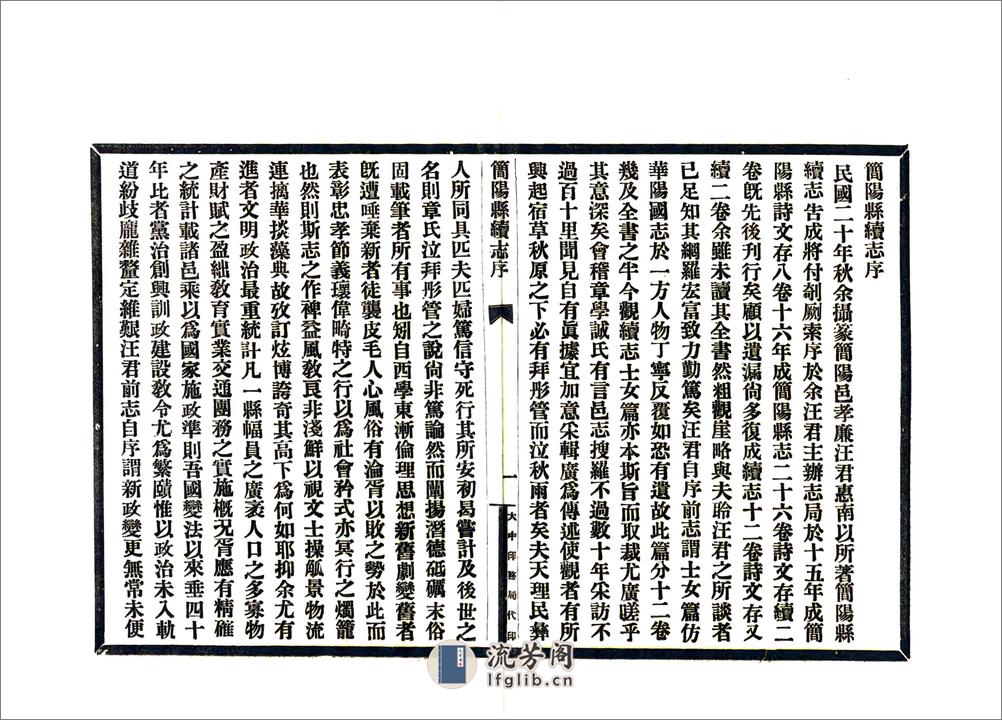 簡陽縣續志序
民國二十年秋余攝篆簡陽邑孝廉汪君惠南以所著簡陽縣
續志吿成將付剞劂索序於余汪君主辦志局於十五年成簡
陽縣詩文存八卷十六年成簡陽縣志二十六卷詩文存續二
卷旣先後刊行矣顧以遺漏尙多復成續志十二卷詩文存又
續二卷余雖未讀其全書然粗觀崖略與夫聆汪君之所談者
已足知其綱羅宏富致力勤篤矣汪君自序前志謂士女篇仿
華陽國志於一方人物丁寧反覆如恐有遺故此篇分十二卷
幾及全書之半今觀續志士女篇亦本斯旨而取裁尤廣嗟乎
其意深矣會稽章學誠氏有言邑志搜羅不過數十年采訪不
過百十里聞見自有眞據宜加意采輯廣爲傳述使觀者有所
興起宿草秋原之下必有拜彤管而泣秋雨者矣夫天理民彝
簡陽縣續志序
一
大中印務局代印
人所同具匹夫匹婦篤信守死行其所安初曷嘗計及後世之
名則章氏泣拜彤管之說尙非篤論然而闡揚潛德砥礪末俗
固載筆者所有事也矧自西學東漸倫理思想新舊劇變舊者
旣遭唾棄新者徒襲皮毛人心風俗有淪胥以敗之勢於此而
表彰忠孝節義瓌偉畸特之行以爲社會矜式亦冥行之燭籠
也然則斯志之作裨益風敎良非淺鮮以視文士操觚景物流
連摛華掞藻典故攷訂炫博誇奇其高下爲何如耶抑余尤有
進者文明政治最重統計凡一縣幅員之廣袤人口之多寡物
產財賦之盈絀敎育實業交通團務之實施槪况胥應有精確
之統計載諸邑乘以爲國家施政準則吾國變法以來垂四十
年比者黨治創興訓政建設敎令尤爲繁賾惟以政治未入軌
道紛歧龐雜釐定維艱汪君前志自序謂新政變更無常未便
流芳阁
lfglib.cn